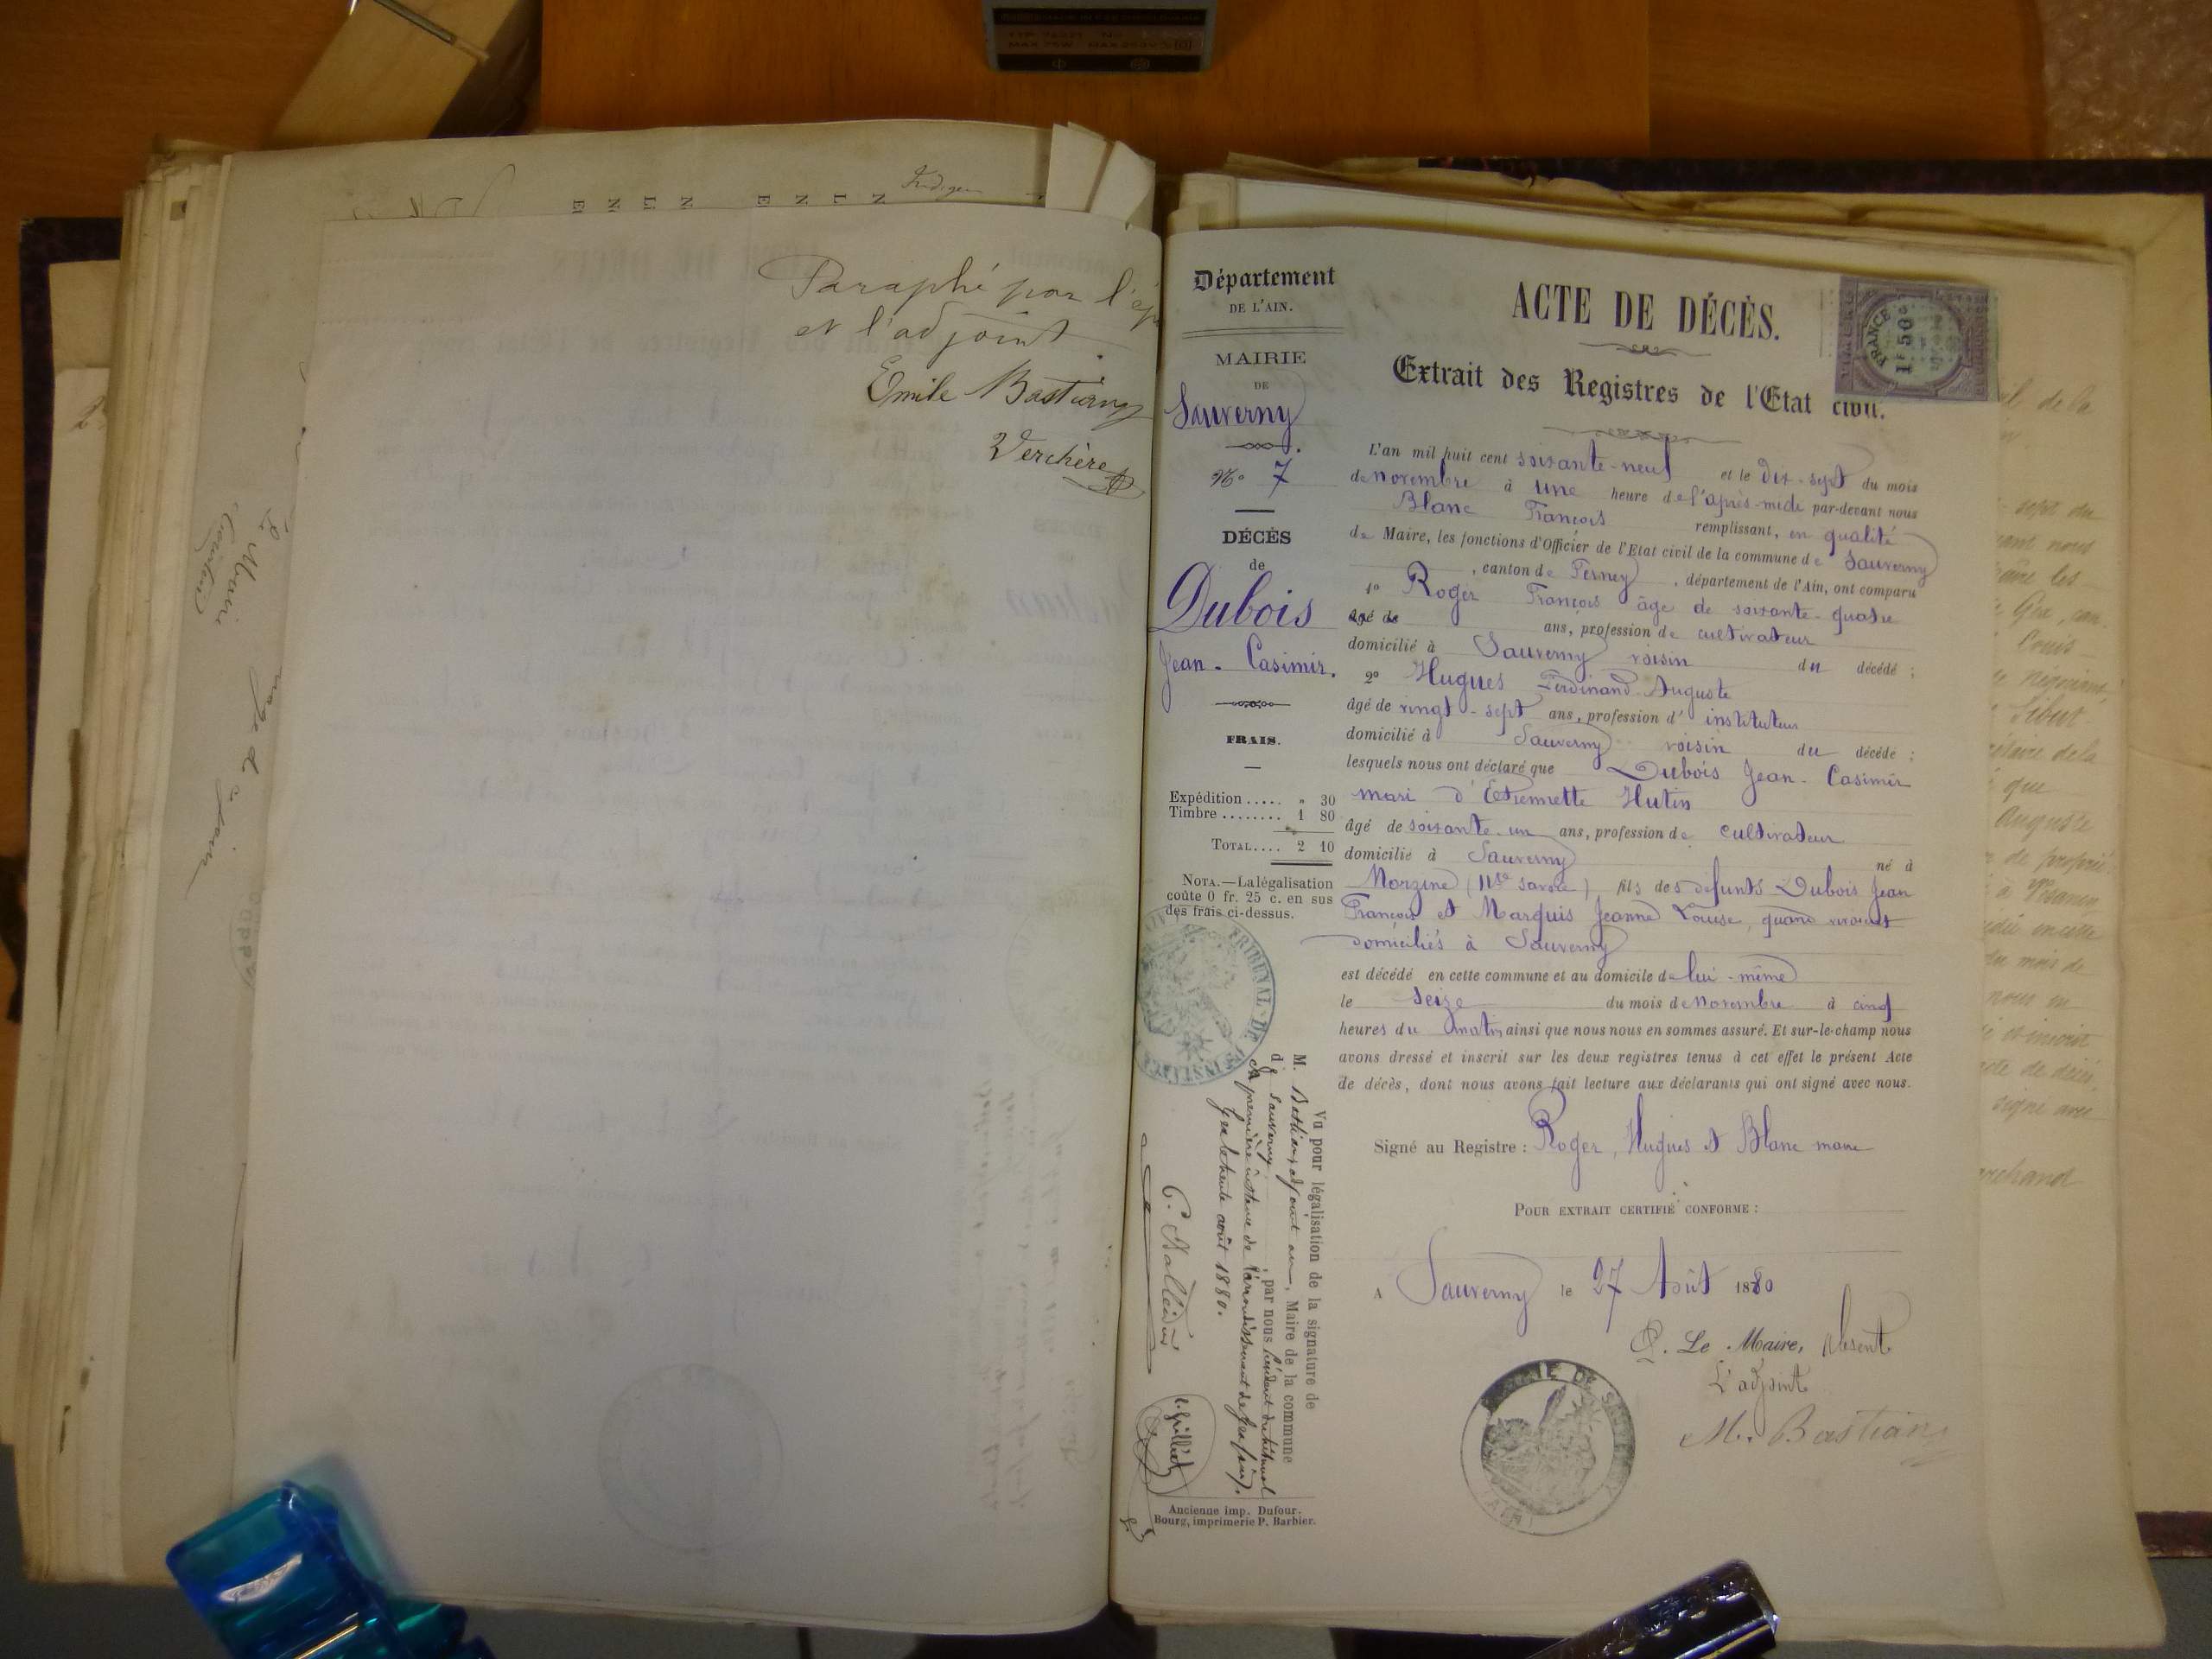 Paraphé par l'ép
et l'adjoint
Emile Bastian
Verchère
Département
DE L'AIN.
MAIRIE
DE
Sauverny
No 7
DÉCÈS
de
Dubois
Jean-Casimir.
FRAIS.
Expédition ..... " 30
Timbre ........ 1 80
TOTAL.... 2 10
NOTA.—La légalisation
coûte 0 fr. 25 c. en sus
des frais ci-dessus.
TRIBUNAL DE
Vu pour légalisation de la signature de
M. Bastian, adjoint au, Maire de la commune
de Sauverny, par nous Président du tribunal
de première instance de l'arrondissement de Gex
Gex le trente août 1880.
Ancienne imp. Dufour.
Bourg, imprimerie P. Barbier.
ACTE DE DÉCÈS.
Extrait des Registres de l'Etat civil.
FRANCE
1F 50c
L'an mil huit cent soixante-neuf et le dix-sept du mois
de novembre à une heure de l'après-midi par-devant nous
Blanc François remplissant, en qualité
de Maire, les fonctions d'Officier de l'Etat civil de la commune de Sauverny
, canton de Ferney, département de l'Ain, ont comparu
1o Roger François âge de soixante-quatre
âgé de ans, profession de cultivateur
domicilié à Sauverny voisin du décédé ;
2o Hugues Ferdinand-Auguste
âgé de vingt-sept ans, profession d'instituteur
domicilié à Sauverny voisin du décédé ;
lesquels nous ont déclaré que Dubois Jean-Casimir
mari d'Etiennette Hutin
âgé de soixante-un ans, profession de cultivateur
domicilié à Sauverny né à
Morzine (Hte Savoie) fils des défunts Dubois Jean
François et Marquis Jeanne Louise, quand vivaient
domiciliés à Sauverny
est décédé en cette commune et au domicile de lui-même
le seize du mois de novembre à cinq
heures du matin ainsi que nous nous en sommes assuré. Et sur-le-champ nous
avons dressé et inscrit sur les deux registres tenus à cet effet le présent Acte
de décès, dont nous avons fait lecture aux déclarants qui ont signé avec nous.
Signé au Registre : Roger, Hugues et Blanc maire
POUR EXTRAIT CERTIFIÉ CONFORME :
A Sauverny le 27 Août 1880
P. Le Maire, absent
L'adjoint
M. Bastian
MAIRIE DE SAUVERNY
(AIN)